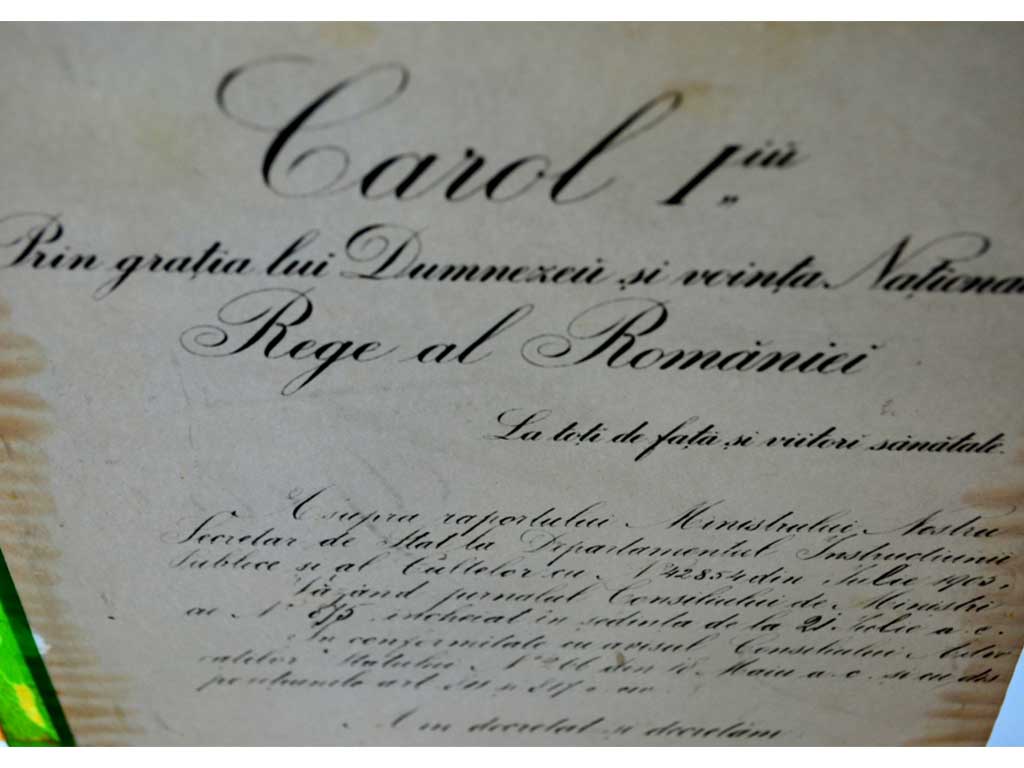 Carol I.iŭ
Prin grația lui Dumnezeŭ și voința Național
Rege al Romăniei
La toți de față și viitori sănătate.
Asupra raportului Ministrului Nostru
Secretar de Stat la Departamentul Instrucțiunii
Publice și al Cultelor cu Nº 42854 din Iulie
Văzênd jurnalul Consiliului de Miniștri
cu Nº 875 încheiat în ședința de la 21 Iulie a.c.
In conformitate cu avisul Consiliului
Statului Nº 266 din 18 Maiu a.c. și cu dis
art.
Am decretat și decretăm